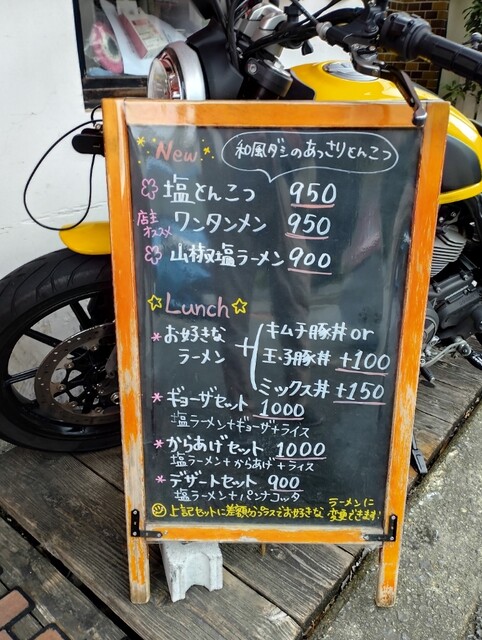 New
和風ダシのあっさりとんこつ
塩とんこつ 950
店主オススメ ワンタンメン 950
山椒塩ラーメン 900
Lunch
*お好きなラーメン + キムチ豚丼 or
王子豚丼 +100
ミックス丼 +150
*ギョーザセット 1000
塩ラーメン+ギョーザ+ライス
*からあげセット 1000
塩ラーメン+からあげ+ライス
*デザートセット 900
塩ラーメン+パンナコッタ
上記セットに差額分プラスでお好きなラーメンに変更できます!